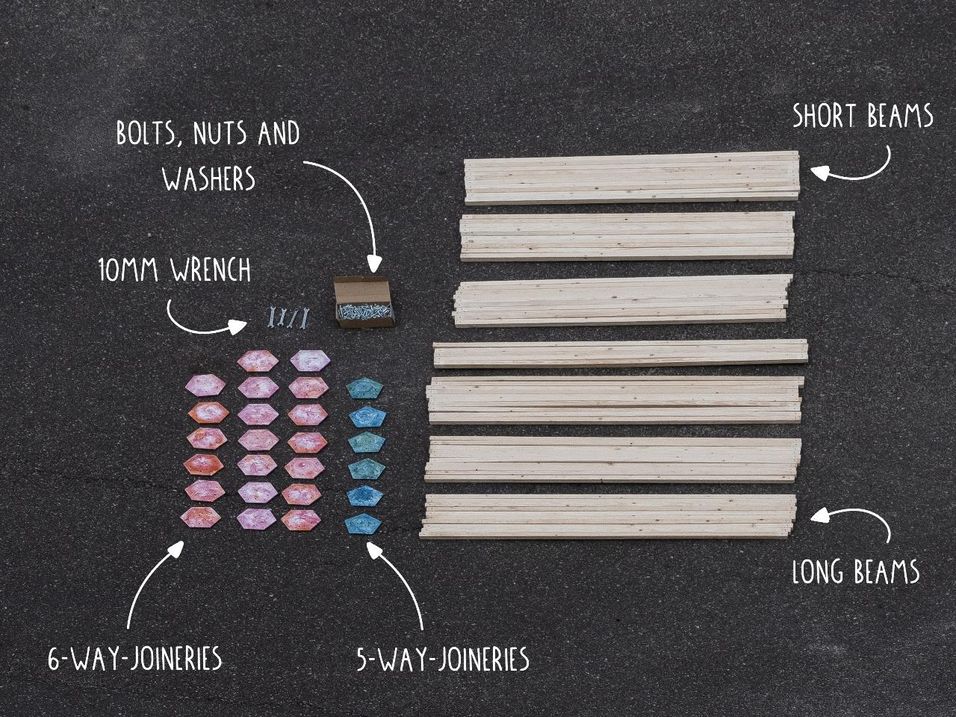 SHORT BEAMS
BOLTS, NUTS AND
WASHERS
10MM WRENCH
LONG BEAMS
6-WAY-JOINERIES
5-WAY-JOINERIES